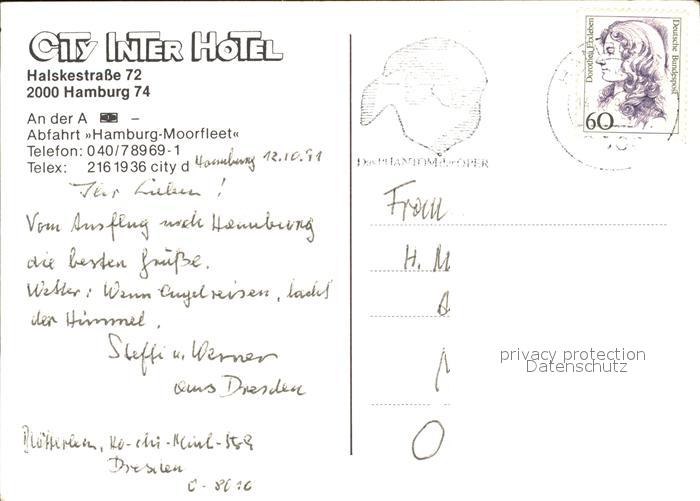 CITY INTER HOTEL
Halskestraße 72
2000 Hamburg 74
An der A –
Abfahrt »Hamburg-Moorfleet«
Telefon: 040/78969-1
Telex: 2161936 city d
Hamburg 12.10.91
Ihr Lieben!
Vom Ausflug nach Hamburg
die besten Grüße.
Wetter: Wenn Engel reisen, lacht
der Himmel.
Steffi u. Werner
aus Dresden
Ho-chi-Minh-Str
Dresden
O-8010
Das PHANTOM der OPER
Dorothea Erxleben
Deutsche Bundespost
60
Fam
H. M
privacy protection
Datenschutz
O